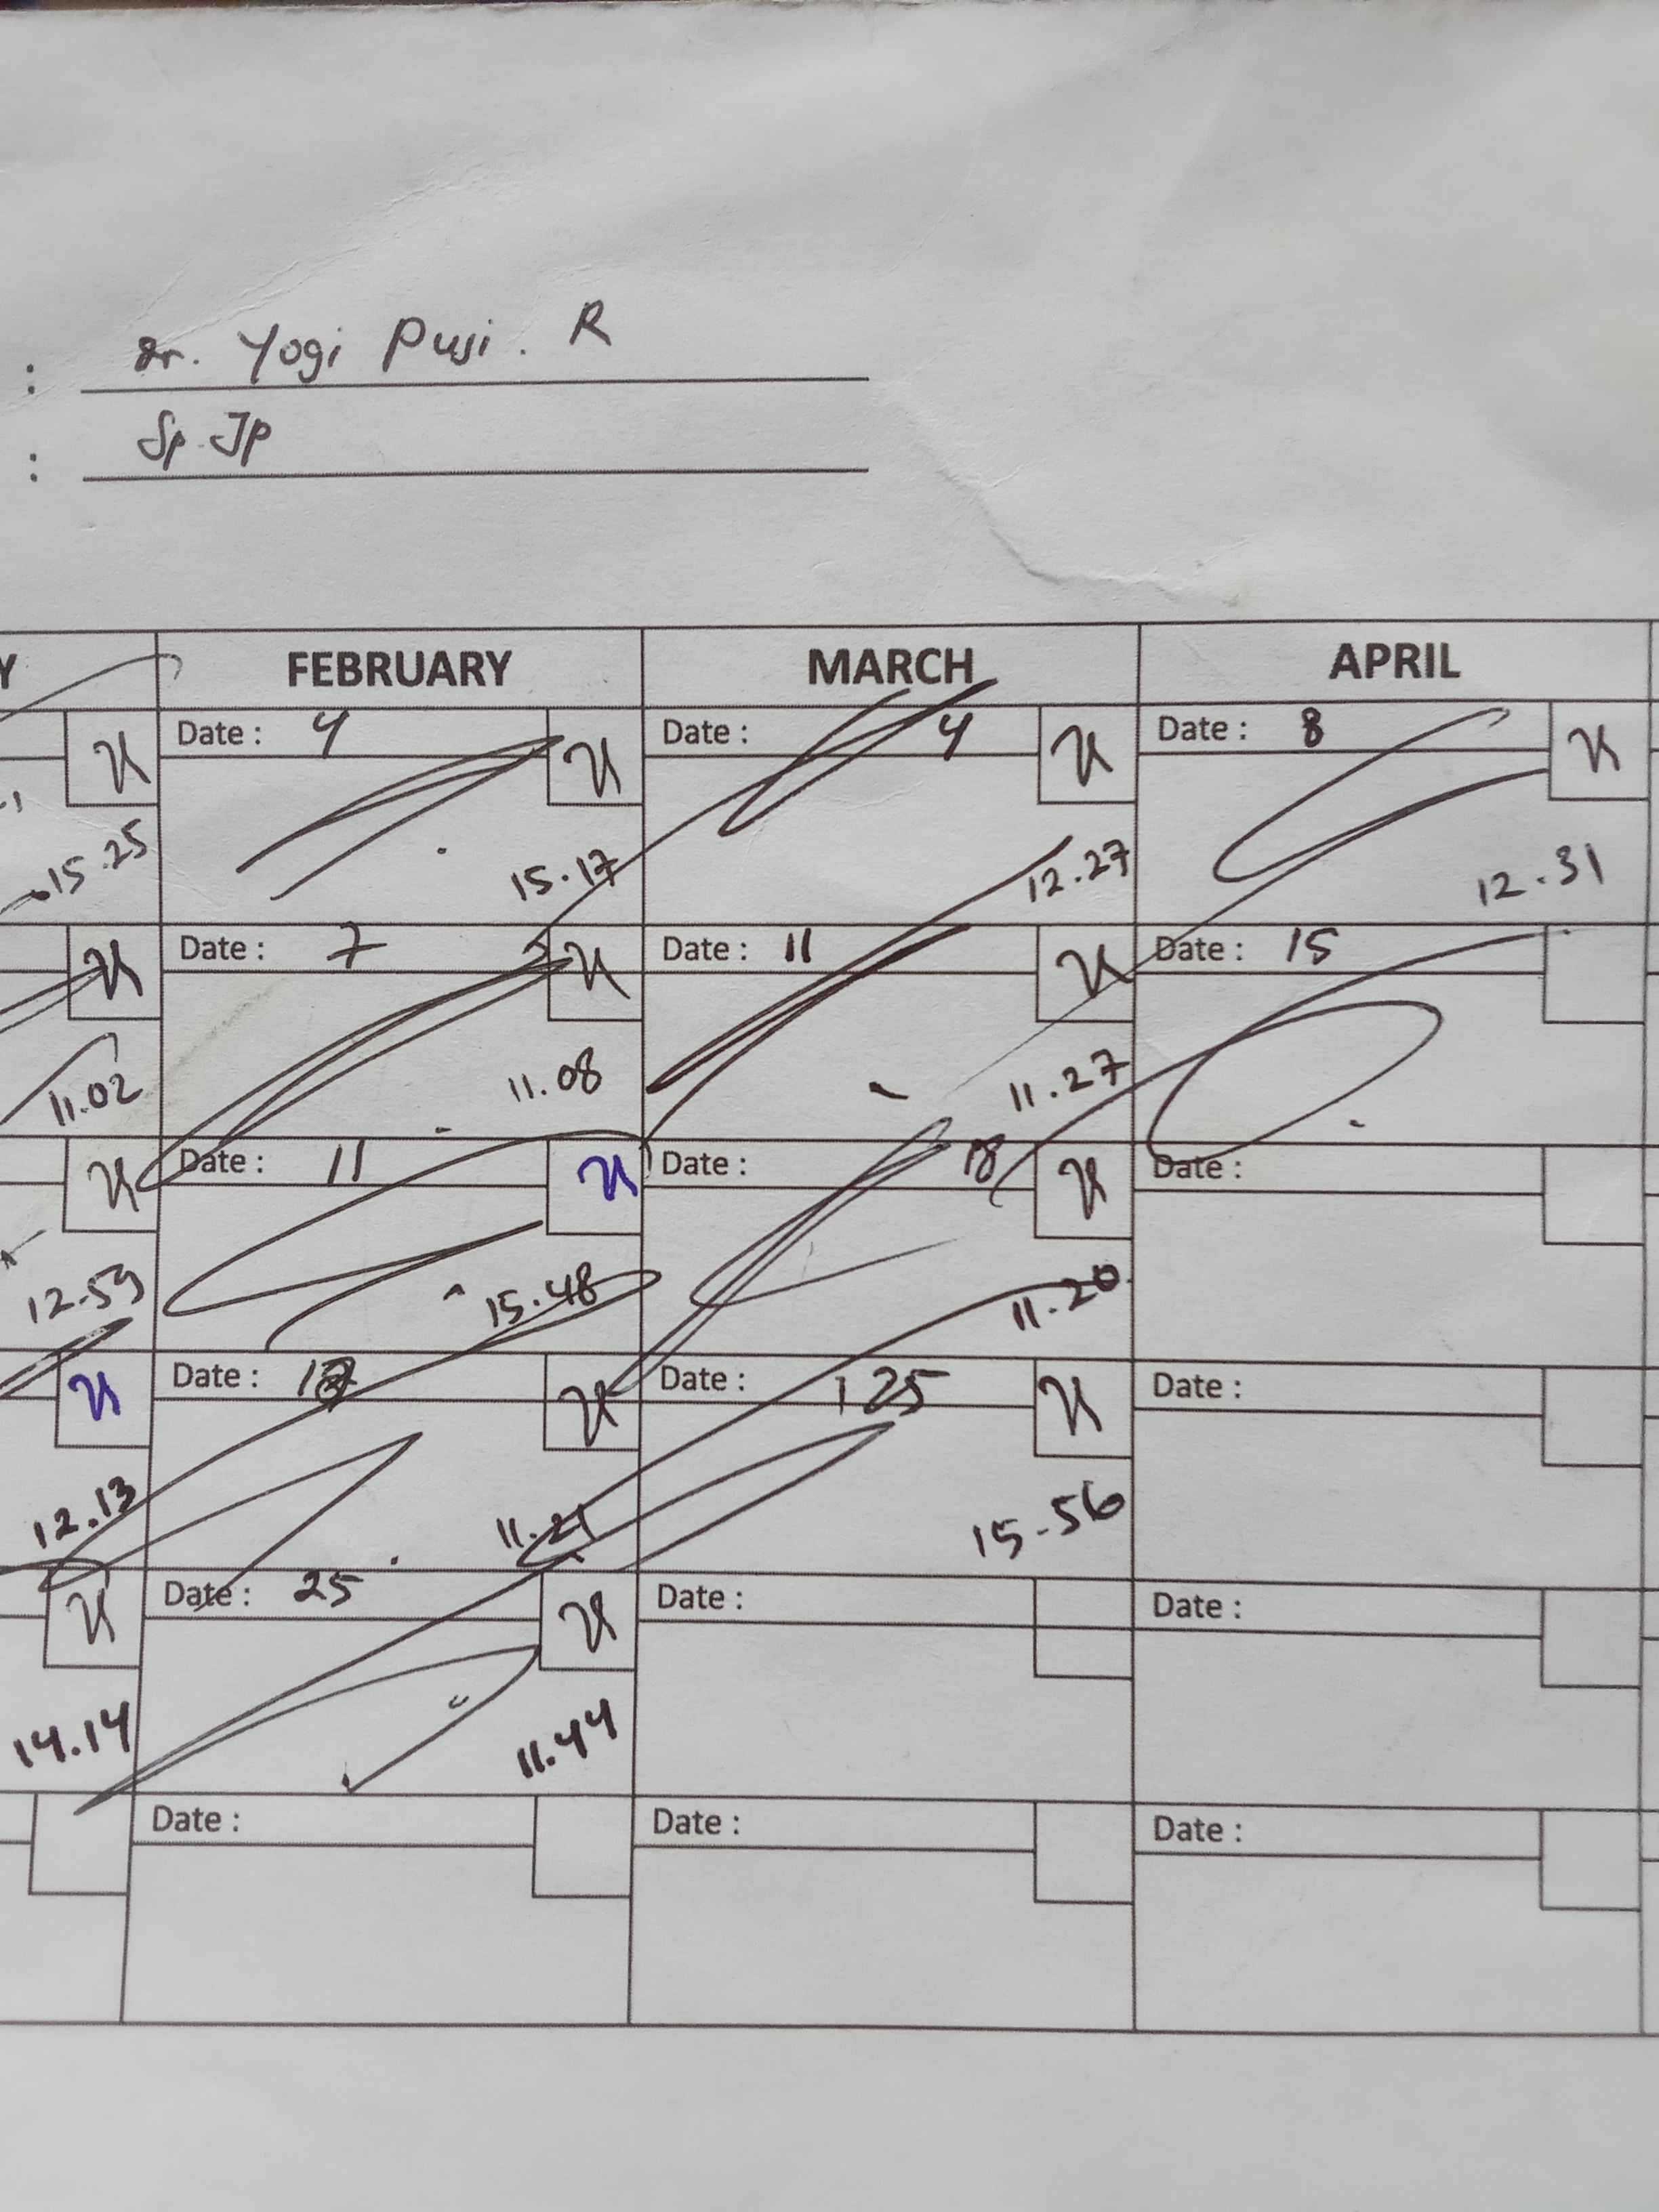 : dr. Yogi Puji. R
: Sp.JP
Y FEBRUARY MARCH APRIL
Date : 4 Date : 4 Date : 8
15.25 15.17 12.27 12.31
Date : 7 Date : 11 Date : 15
11.02 11.08 11.27
Date : 11 Date : 18 Date :
12.59 15.48 11.20
Date : Date : 25 Date :
12.13 11.21 15-56
Date : 25 Date : Date :
14.14 11.44
Date : Date : Date :